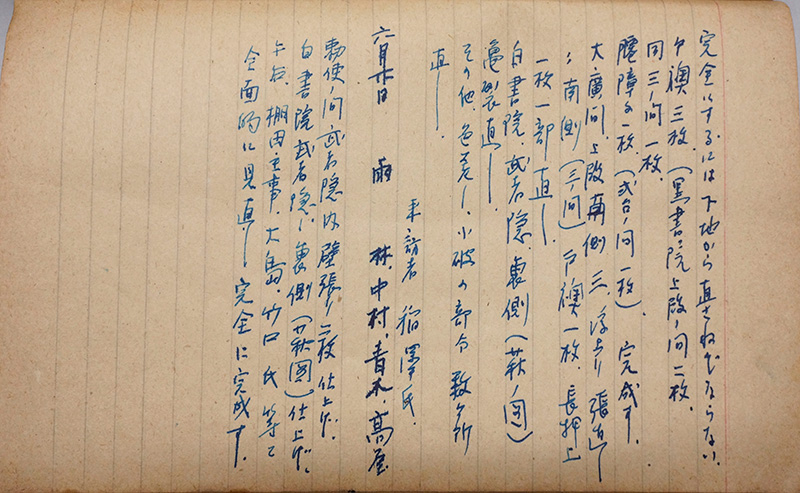 完全にするには下地から直さねばならない、
戸襖三枚、(黒書院上段ノ間二枚、
同三ノ間一枚、
腰障子一枚、(式台ノ間一枚) 完成す、
大広間、上段南側三、浮上り張直し
〃南側(三ノ間)戸襖一枚、長押上
一枚一部直し、
白書院、武者隠、裏側(萩ノ図)
亀裂直し、
その他、色差し、小破の部分数ヶ所
直し、
来訪者 稲澤氏、
六月廿日 雨 林、中村、青木、高屋
勅使ノ間武者隠内壁張り二枚仕上げ、
白書院武者隠し裏側(萩図)仕上げ、
午后、棚田主事、大島、竹口氏等と
全面的に見直し 完全に完成す、